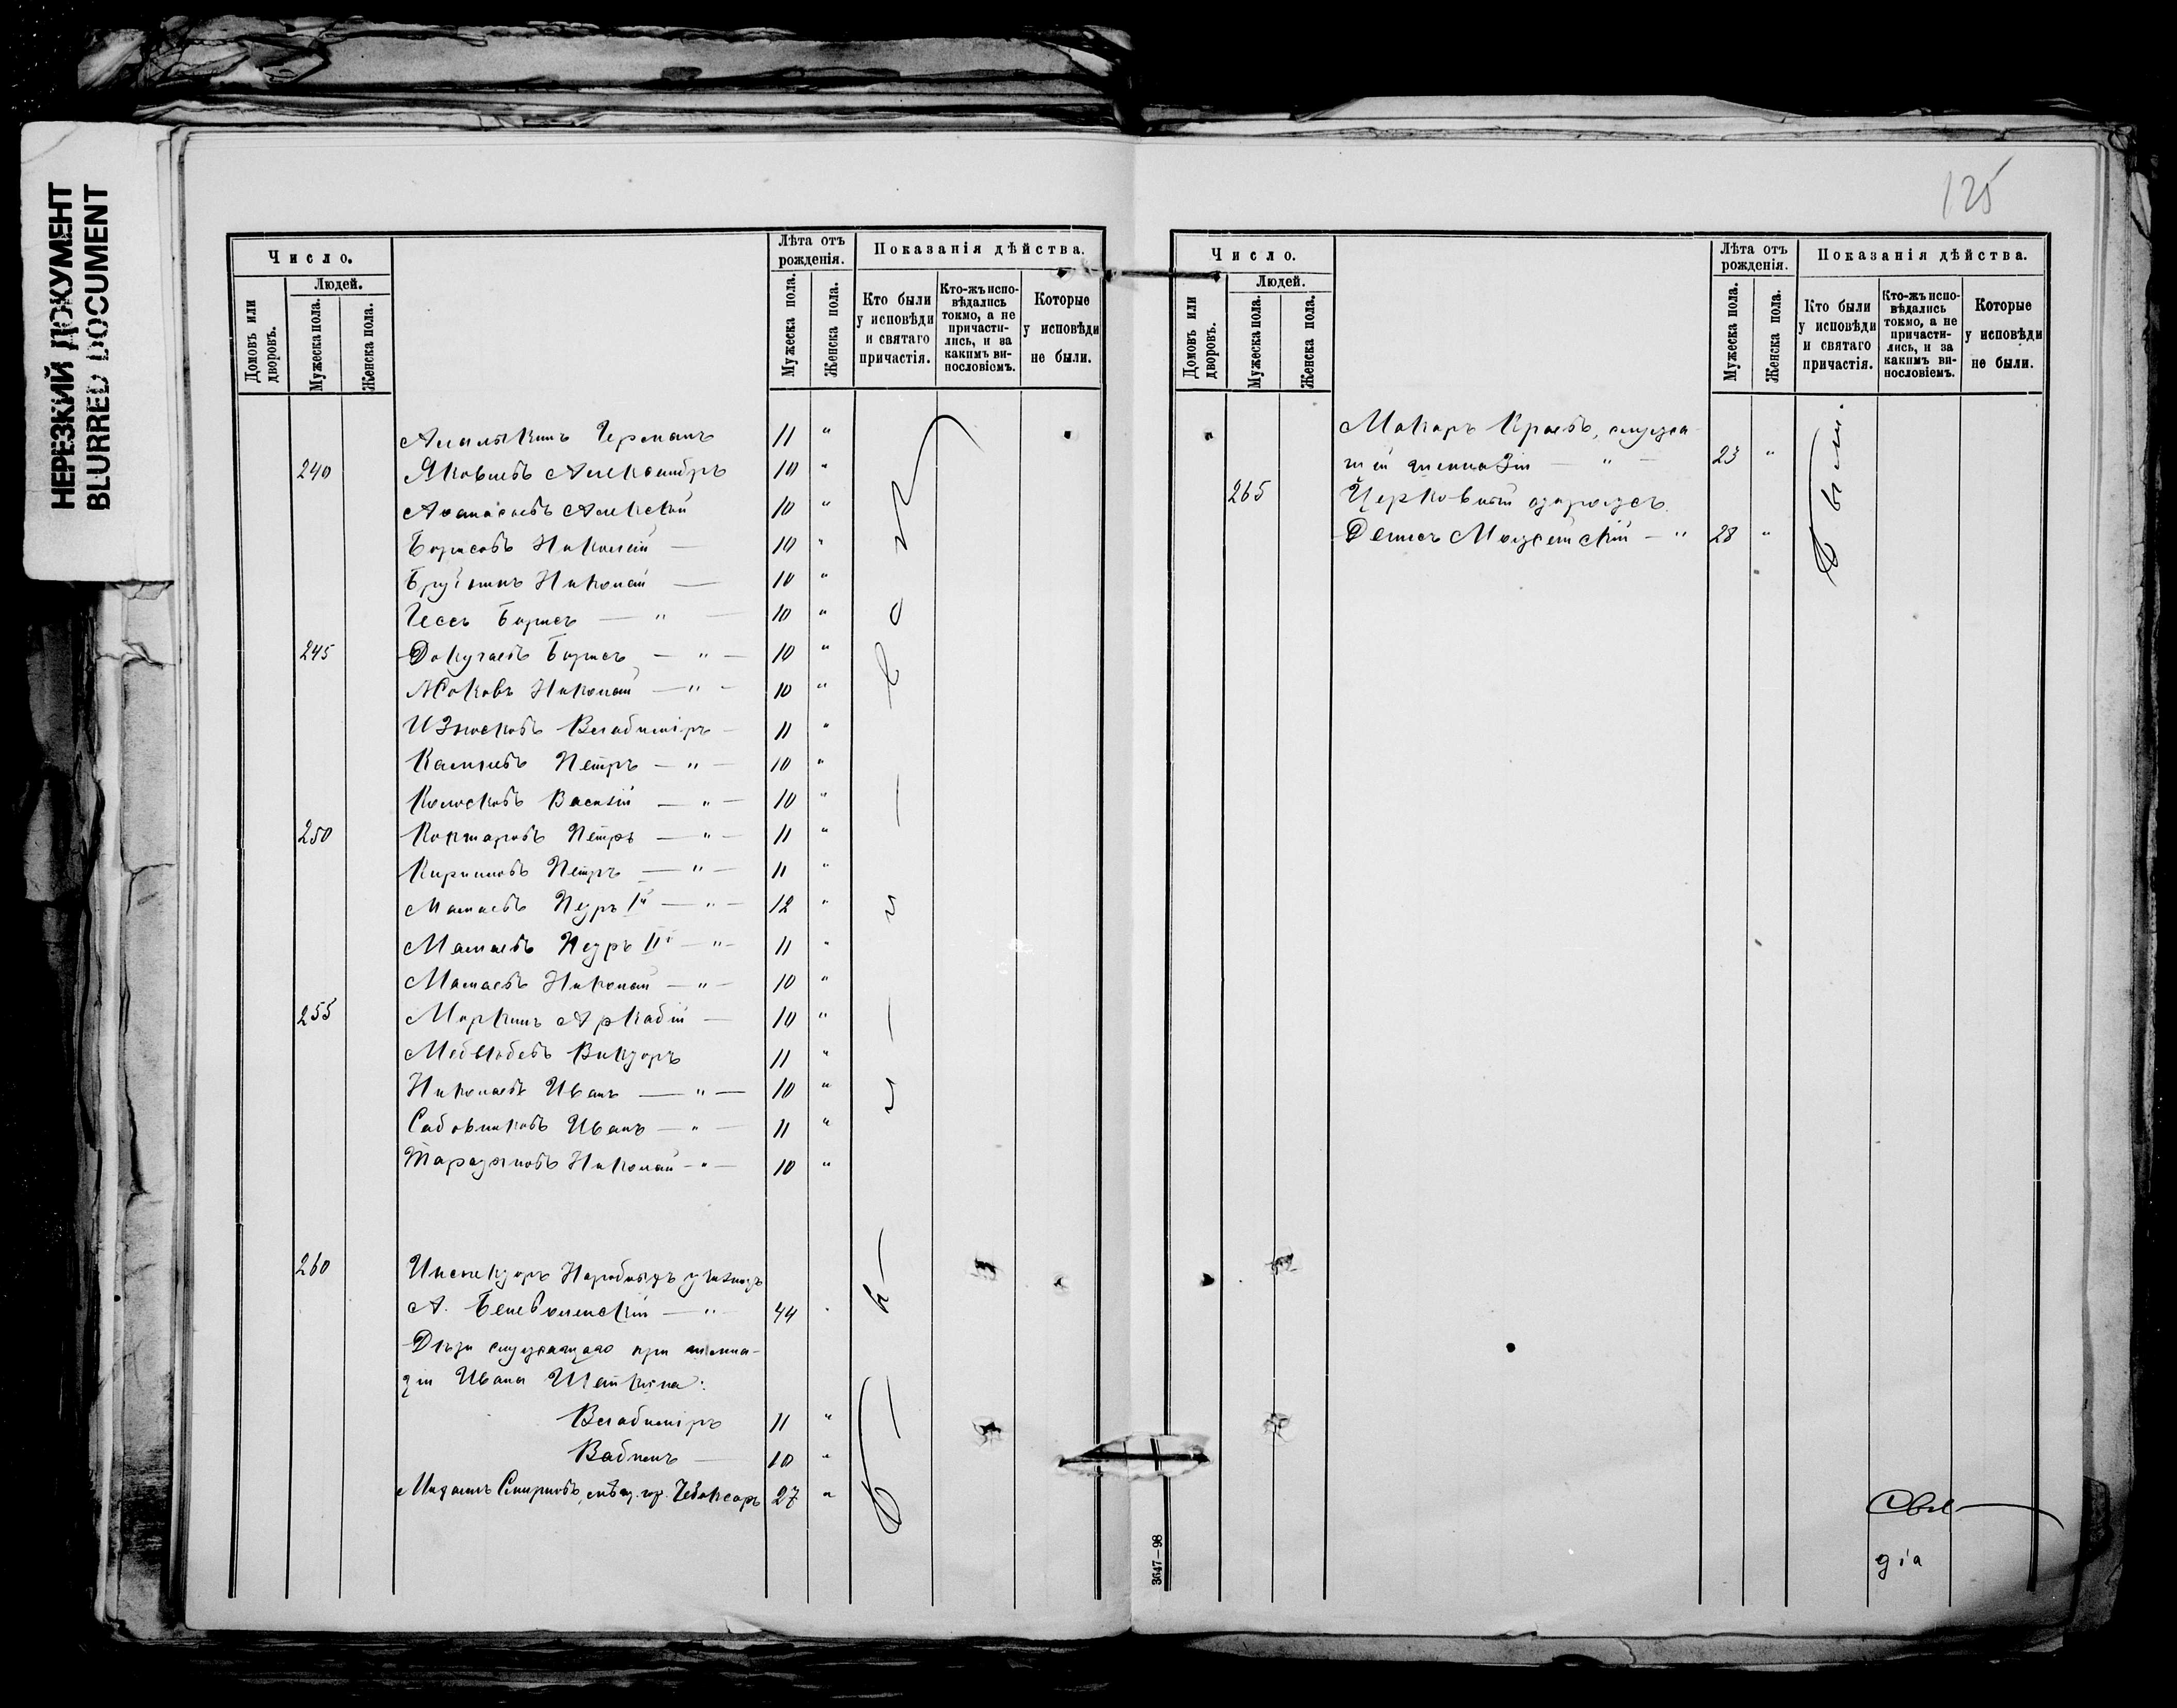 НЕРЕЗКИЙ ДОКУМЕНТ
BLURRED DOCUMENT
Число.
Людей.
Домовъ или дворовъ.
Мужеска пола.
Женска пола.
Лѣта отъ рожденія.
Мужеска пола.
Женска пола.
Показанія дѣйства.
Кто были у исповѣди и святаго причастія.
Кто-жъ исповѣдались токмо, а не причастились, и за какимъ винословіемъ.
Которые у исповѣди не были.
Германъ 11 "
240 Яковлевъ Александръ 10 "
Аѳанасьевъ Алексѣй 10 "
Борисовъ Николай — 10 "
Николай — 10 "
Гессъ Борисъ — " — 10 "
245 Докучаевъ Борисъ — " — 10 "
Жоковъ Николай — " — 10 "
Износковъ Владиміръ — 11 "
Петръ — " — 10 "
Колосковъ Василій — " — 10 "
250 Петръ — " — 11 "
Кирилловъ Петръ — " — 11 "
Мамаевъ Петръ Iй — " — 12 "
Мамаевъ Петръ IIй — " — 11 "
Мамаевъ Николай — " — 10 "
255 Маркинъ Аркадій — 10 "
Медвѣдевъ Викторъ 11 "
Николаевъ Иванъ — " — 10 "
Садовниковъ Иванъ — " — 11 "
Николай — " — 10 "
260 Инспекторъ Народныхъ училищъ
А. Беневоленскій — " 44 "
Дѣти служащаго при гимна-
зіи Ивана Шайкина:
Владиміръ 11 "
Вадимъ — 10 "
Смирновъ, мѣщ. гр. Чебоксаръ 27 "
125
Число.
Людей.
Домовъ или дворовъ.
Мужеска пола.
Женска пола.
Лѣта отъ рожденія.
Мужеска пола.
Женска пола.
Показанія дѣйства.
Кто были у исповѣди и святаго причастія.
Кто-жъ исповѣдались токмо, а не причастились, и за какимъ винословіемъ.
Которые у исповѣди не были.
Макаръ Краевъ, служа-
щій гимназіи — " — 23 "
265 Церковный сторожъ
Денисъ — " 28 "
Были.
3647—98
Свя
діа